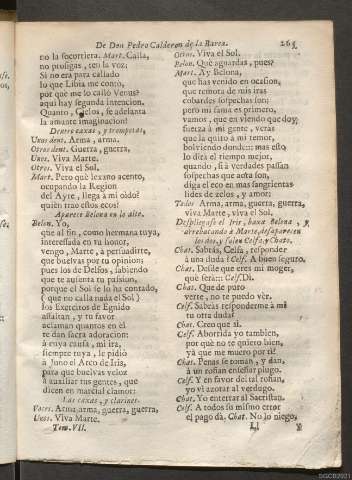 De Don Pedro Calderon de la Barca. 265
no la socorriera. Mart. Calla,
no prosigas, ten la voz:
Si no era para callado
lo que Libia me contò,
por què me lo callò Venus?
aqui hay segunda intencion.
Quanto, zelos, se adelanta
la amante imaginacion!
Dentro caxas, y trompetas,
Unos dent. Arma, arma.
Otros dent. Guerra, guerra,
Unos. Viva Marte.
Otros. Viva el Sol.
Mart. Pero què lexano acento,
ocupando la Region
del Ayre, llega à mi oìdo?
quièn trae estos ecos?
Aparece Belona en lo alto.
Belon. Yo,
que al fin, como hermana tuya,
interessada en tu honor,
vengo, Marte, à persuadirte,
que buelvas por tu opinion;
pues los de Delfos, sabiendo
que te ausenta tu passion,
porque el Sol se lo ha contado,
( què no calla nada el Sol )
los Exercitos de Egnido
assaltan, y tu favor
aclaman quantos en èl
te dan sacra adoracion:
à cuya causa, mi ira,
siempre tuya, le pidiò
à Juno el Arco de Iris,
para que buelvas veloz
à auxiliar tus gentes, que
dicen en marcial clamor:
Las caxas, y clarines.
Voces. Arma, arma, guerra, guerra,
Unos. Viva Marte.
Tom. VII.
Otros. Viva el Sol.
Belon. Què aguardas, pues?
Mart. Ay Belona,
que has venido en ocasion,
que remota de mis iras
cobardes sospechas son;
pero mi fama es primero,
vamos, que en viendo que doy
fuerza à mi gente, veràs
que la quito à mi temor,
bolviendo donde: mas esto
lo dirà el tiempo mejor,
quando, si à verdades passan
sospechas que acta son,
diga el eco en mas sangrientas
lides de zelos, y amor:
Todos. Arma, arma, guerra, guerra,
viva Marte, viva el Sol.
Despliegase el Iris, baxa Belona, y
arrebatando à Marte, desaparecen
los dos, y salen Celfa, y Chato.
Chat. Sabràs, Celfa, responder
à una duda? Celf. A buen seguro.
Chat. Desde que eres mi moger,
què serà:: Celf. Di.
Chat. Que de puro
verte, no te puedo vèr.
Celf. Sabràs responderme à mì
tu otra duda?
Chat. Creo que sì.
Celf. Aborrida yo tambien,
por què no te quiero bien,
yà que me muero por tì?
Chat. Penas se toman, y dàn,
à un rofian ensessar plugo.
Celf. Y en favor del tal rofian,
yo vì azotar al verdugo.
Chat. Yo enterrar al Sacristan.
Celf. A todos su mismo error
el pago dà. Chat. No lo niego,
Ll